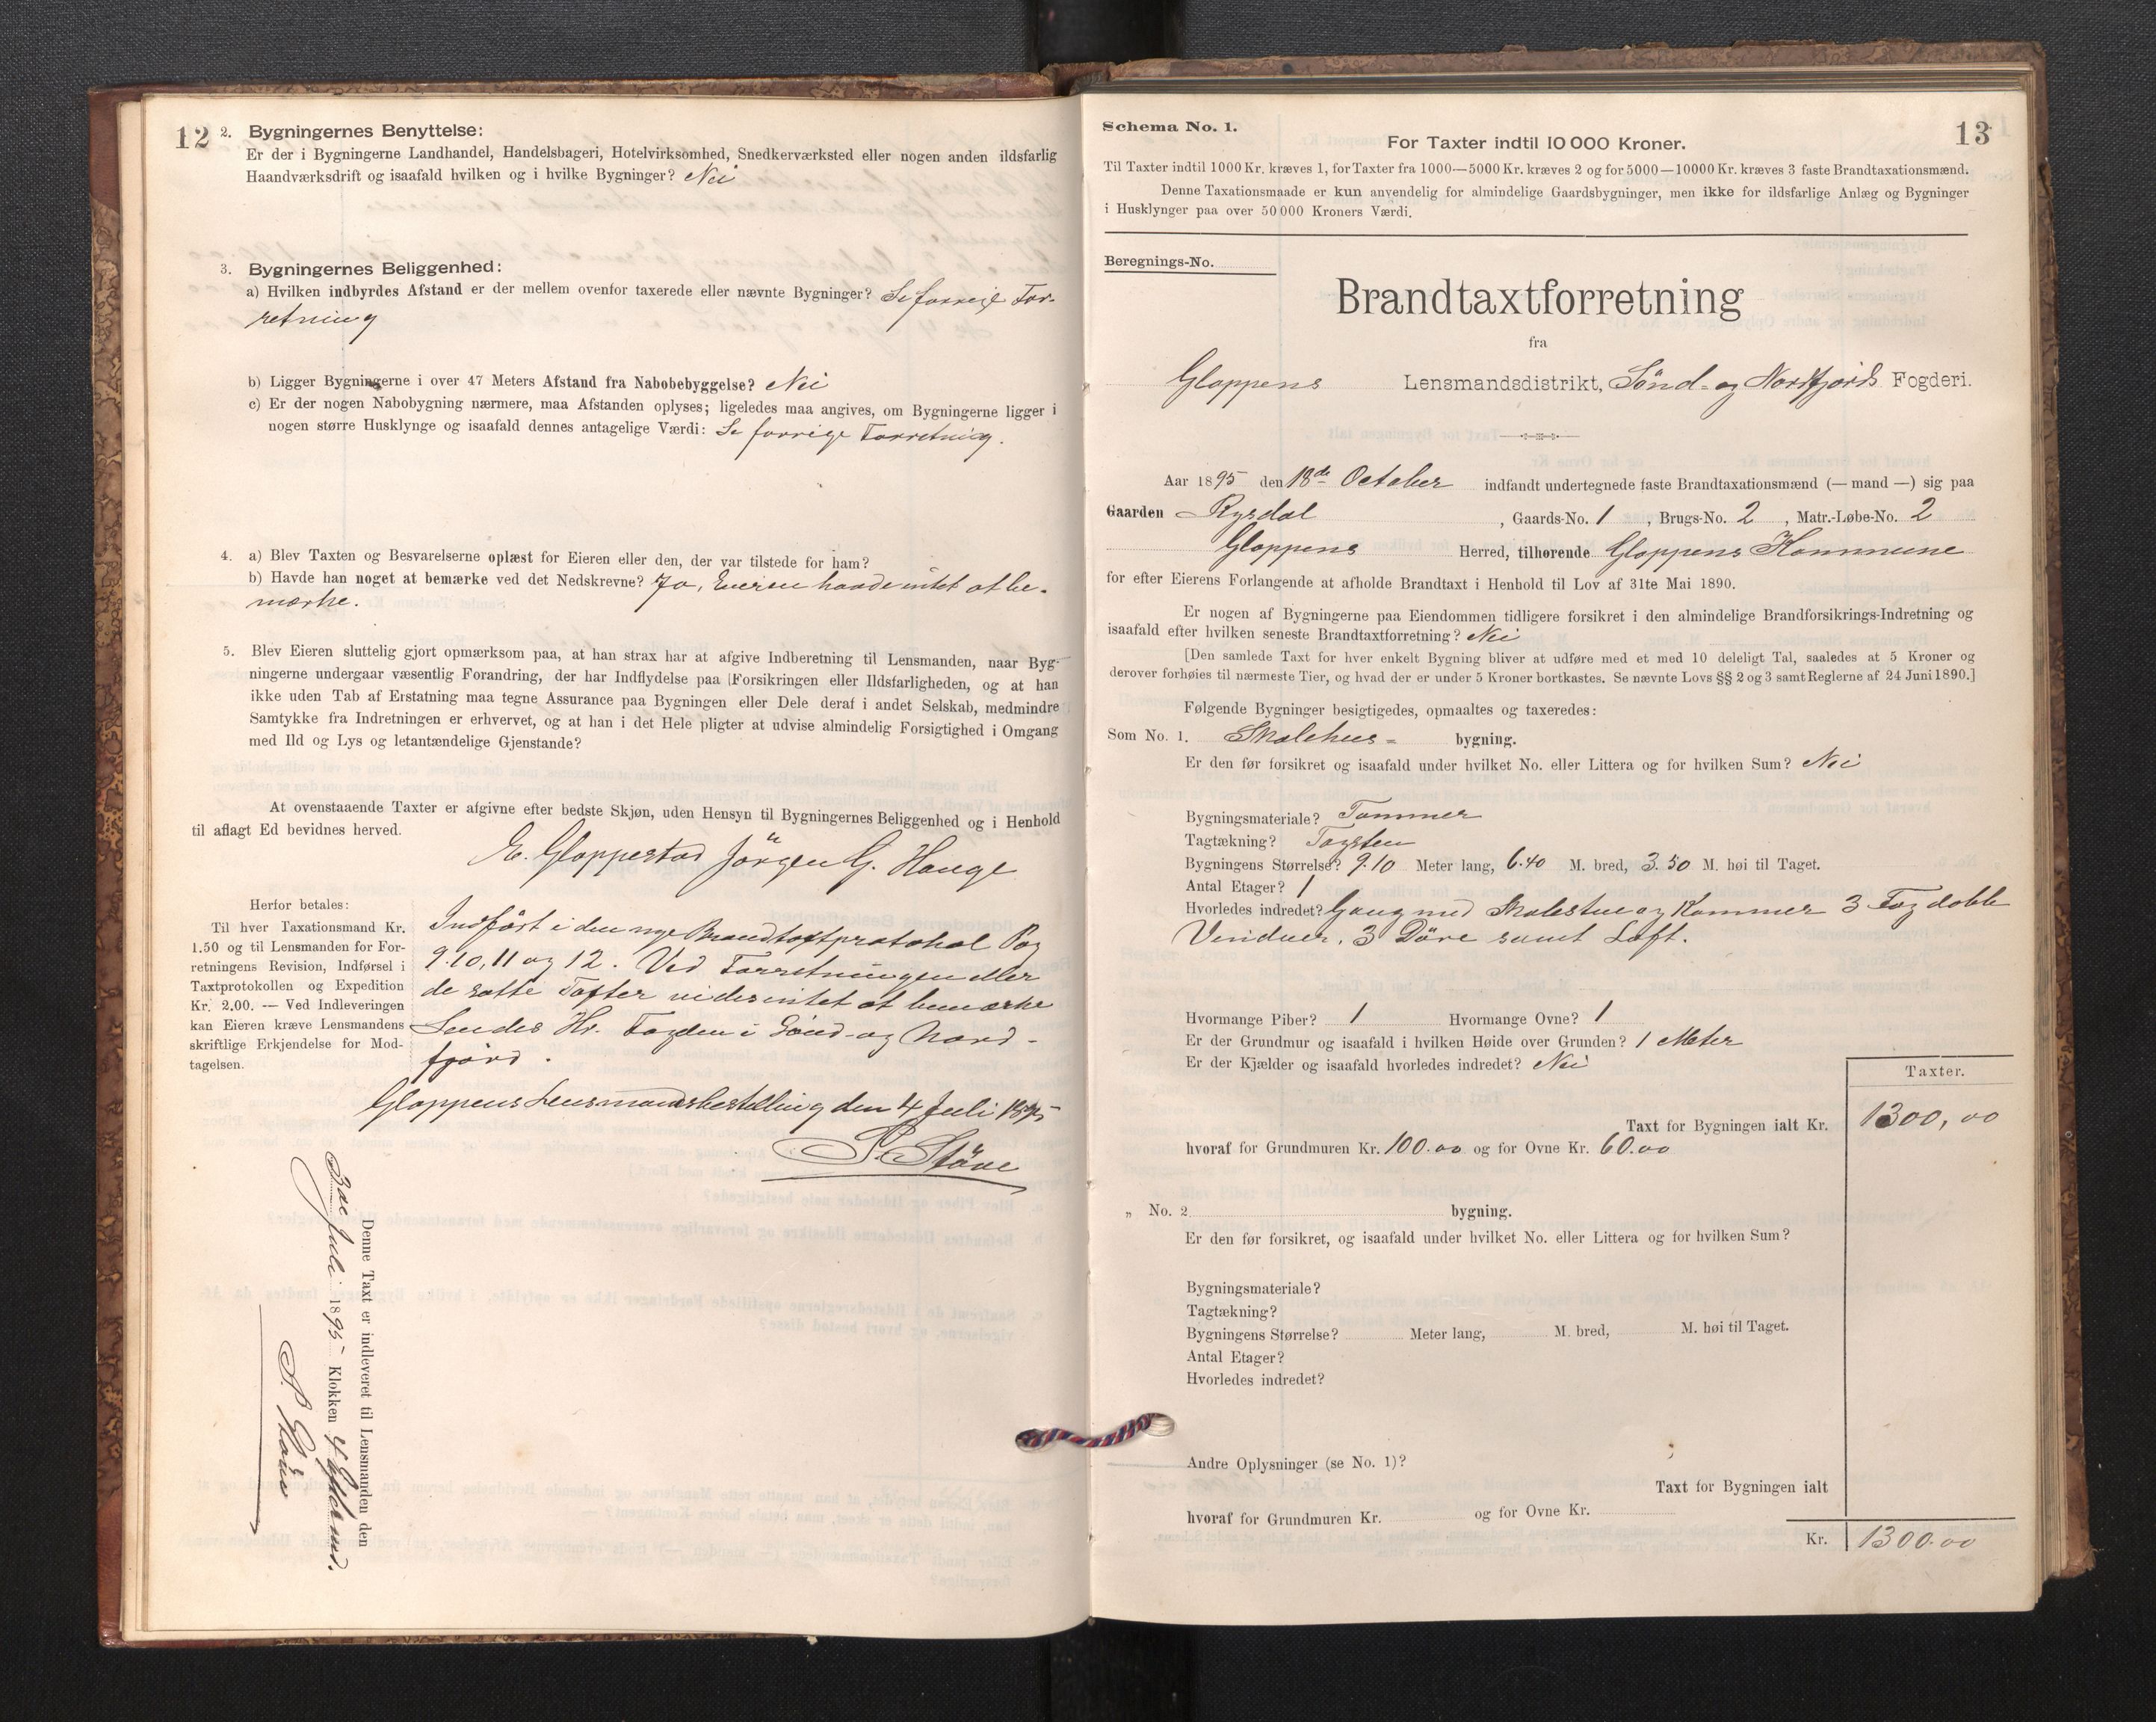 12
2. Bygningernes Benyttelse:
Er der i Bygningerne Landhandel, Handelsbageri, Hotelvirksomhed, Snedkerværksted eller nogen anden ildsfarlig
Haandværksdrift og isaafald hvilken og i hvilke Bygninger? Nei
3. Bygningernes Beliggenhed:
a) Hvilken indbyrdes Afstand er der mellem ovenfor taxerede eller nævnte Bygninger? Se forrige For-
retning
b) Ligger Bygningerne i over 47 Meters Afstand fra Nabobebyggelse? Nei
c) Er der nogen Nabobygning nærmere, maa Afstanden oplyses; ligeledes maa angives, om Bygningerne ligger i
nogen større Husklynge og isaafald dennes antagelige Værdi: Se forrige Forretning.
4. a) Blev Taxten og Besvarelserne oplæst for Eieren eller den, der var tilstede for ham?
b) Havde han noget at bemærke ved det Nedskrevne? Ja, Eieren havde intet at be-
mærke.
5. Blev Eieren sluttelig gjort opmærksom paa, at han strax har at afgive Indberetning til Lensmanden, naar Byg-
ningerne undergaar væsentlig Forandring, der har Indflydelse paa Forsikringen eller Ildsfarligheden, og at han
ikke uden Tab af Erstatning maa tegne Assurance paa Bygningen eller Dele deraf i andet Selskab, medmindre
Samtykke fra Indretningen er erhvervet, og at han i det Hele pligter at udvise almindelig Forsigtighed i Omgang
med Ild og Lys og letantændelige Gjenstande?
At ovenstaaende Taxter er afgivne efter bedste Skjøn, uden Hensyn til Bygningernes Beliggenhed og i Henhold
til aflagt Ed bevidnes herved.
E. Gloppestad Jörgen G. Hauge
Herfor betales:
Til hver Taxationsmand Kr.
1.50 og til Lensmanden for For-
retningens Revision, Indførsel i
Taxtprotokollen og Expedition
Kr. 2.00. — Ved Indleveringen
kan Eieren kræve Lensmandens
skriftlige Erkjendelse for Mod-
tagelsen.
Indført i den nye Brandtaxtprotokol Pag
9.10, 11 og 12. Ved Forretningen eller
de satte Taxter vides intet at bemærke
Sendes Hr. Fogden i Sönd- og Nord-
fjord.
Gloppens Lensmandsbestilling den 4 Juli 1895
P. Stöve
Denne Taxt er indleveret til Lensmanden den
3die Juli 1895 Klokken 4 Efterm.
P. Støve
13
Schema No. 1.
For Taxter indtil 10 000 Kroner.
Til Taxter indtil 1000 Kr. kræves 1, for Taxter fra 1000—5000 Kr. kræves 2 og for 5000—10000 Kr. kræves 3 faste Brandtaxationsmænd.
Denne Taxationsmaade er kun anvendelig for almindelige Gaardsbygninger, men ikke for ildsfarlige Anlæg og Bygninger
i Husklynger paa over 50 000 Kroners Værdi.
Beregnings-No.
Brandtaxtforretning
fra
Gloppens Lensmandsdistrikt, Sönd- og Nordfjords Fogderi.
Aar 1895 den 18de October indfandt undertegnede faste Brandtaxationsmænd (— mand —) sig paa
Gaarden Rysdal , Gaards-No. 1 , Brugs-No. 2 , Matr.-Løbe-No. 2
Gloppens Herred, tilhørende Gloppens Kommune
for efter Eierens Forlangende at afholde Brandtaxt i Henhold til Lov af 31te Mai 1890.
Er nogen af Bygningerne paa Eiendommen tidligere forsikret i den almindelige Brandforsikrings-Indretning og
isaafald efter hvilken seneste Brandtaxtforretning? Nei
[Den samlede Taxt for hver enkelt Bygning bliver at udføre med et med 10 deleligt Tal, saaledes at 5 Kroner og
derover forhøies til nærmeste Tier, og hvad der er under 5 Kroner bortkastes. Se nævnte Lovs §§ 2 og 3 samt Reglerne af 24 Juni 1890.]
Følgende Bygninger besigtigedes, opmaaltes og taxeredes:
Som No. 1. Skolehus- bygning.
Er den før forsikret og isaafald under hvilket No. eller Littera og for hvilken Sum? Nei
Bygningsmateriale? Tømmer
Tagtækning? Tagsten
Bygningens Størrelse? 9.10 Meter lang, 6.40 M. bred, 3.50 M. høi til Taget.
Antal Etager? 1
Hvorledes indredet? Gang med Skolestue og Kammer 3 Fag doble
Vinduer, 3 Döre samt Loft.
Hvormange Piber? 1 Hvormange Ovne? 1
Er der Grundmur og isaafald i hvilken Høide over Grunden? 1 Meter
Er der Kjælder og isaafald hvorledes indredet? Nei
Taxter.
Taxt for Bygningen ialt Kr. 1300,00
hvoraf for Grundmuren Kr. 100.00 og for Ovne Kr. 60.00
„ No. 2 bygning.
Er den før forsikret, og isaafald under hvilket No. eller Littera og for hvilken Sum?
Bygningsmateriale?
Tagtækning?
Bygningens Størrelse? Meter lang, M. bred, M. høi til Taget.
Antal Etager?
Hvorledes indredet?
Andre Oplysninger (se No. 1)?
Taxt for Bygningen ialt
hvoraf for Grundmuren Kr. og for Ovne Kr.
Kr. 1300.00